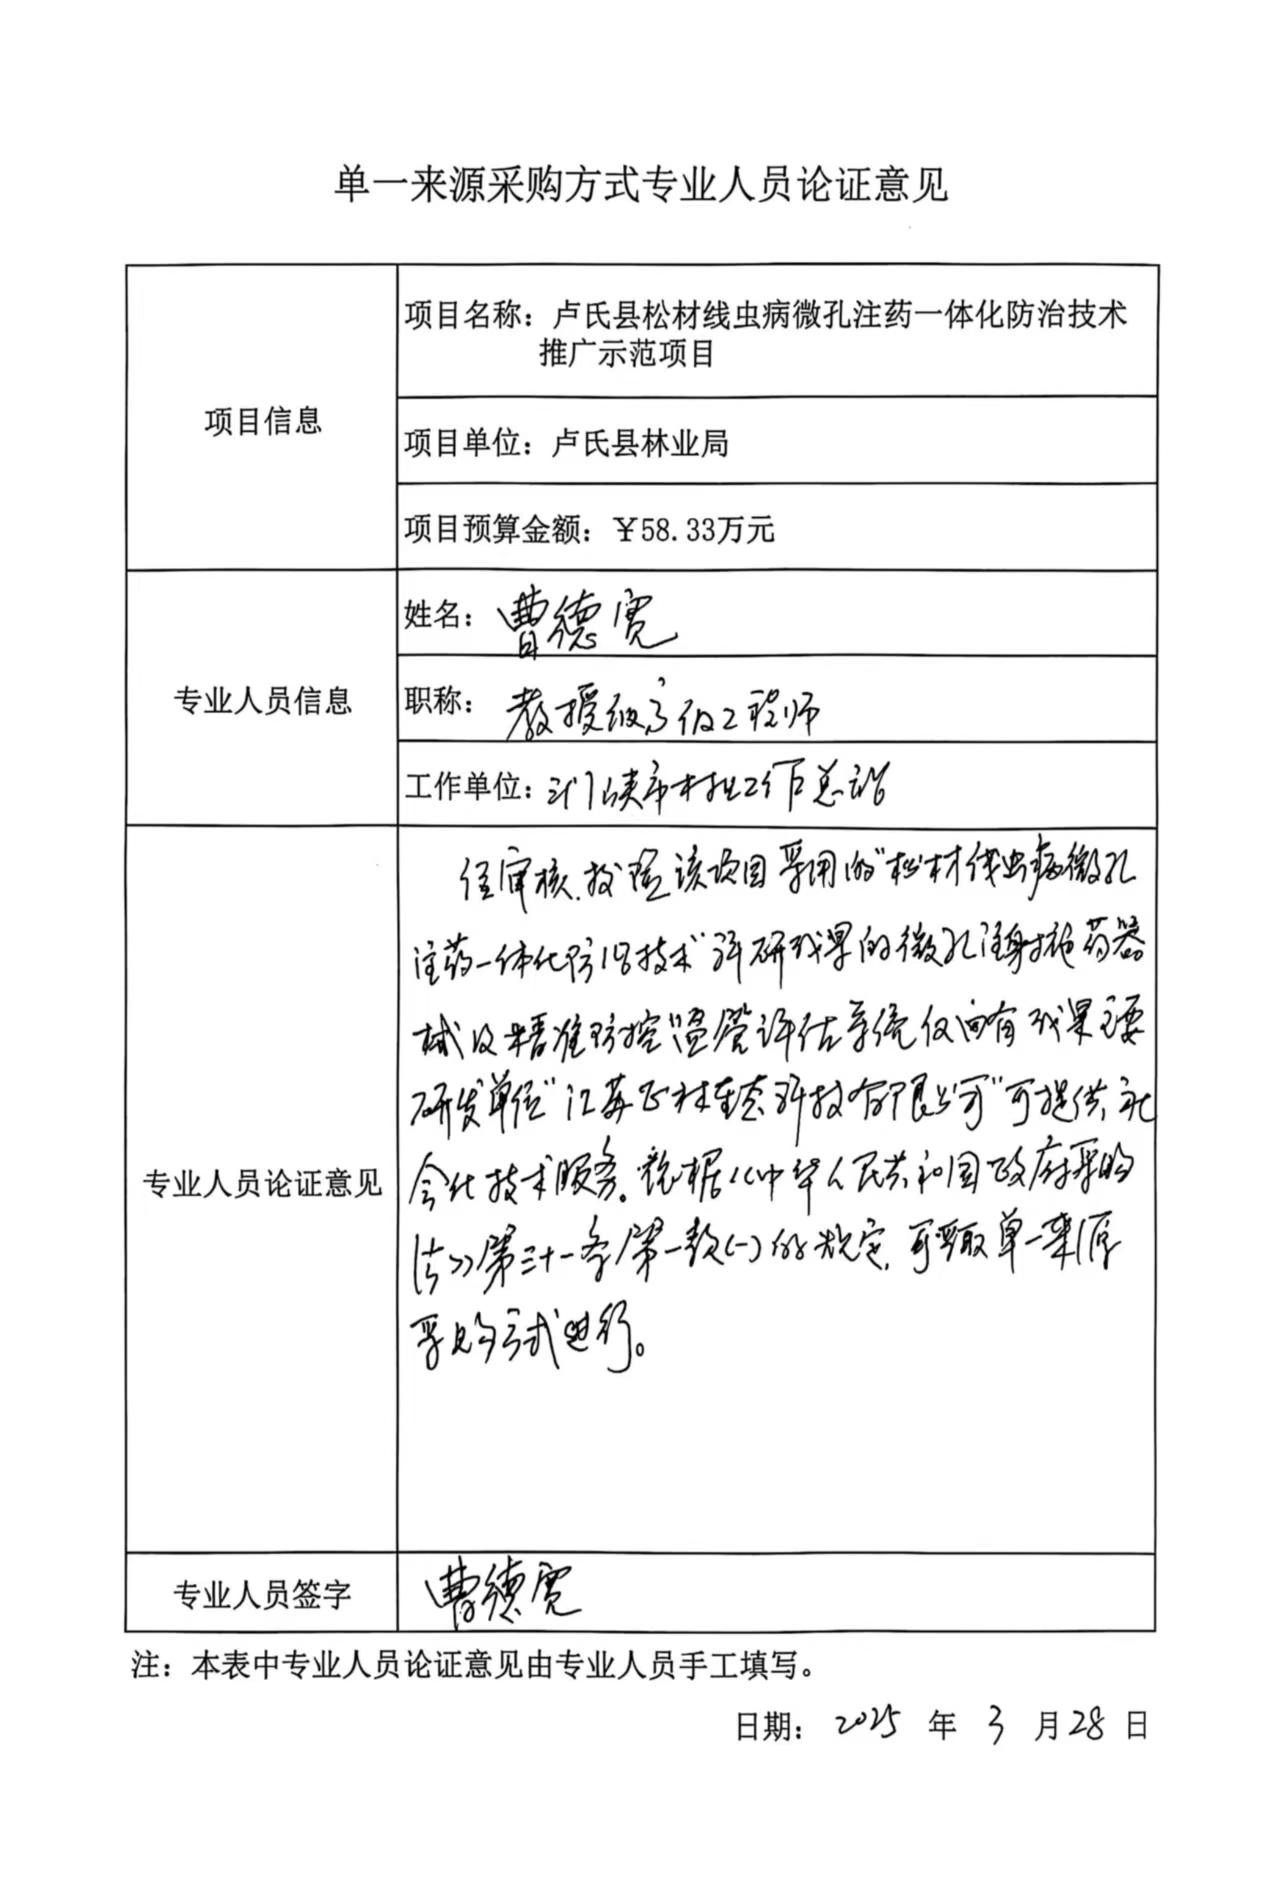 单一来源采购方式专业人员论证意见
项目信息
项目名称：卢氏县松材线虫病微孔注药一体化防治技术
推广示范项目
项目单位：卢氏县林业局
项目预算金额：￥58.33万元
专业人员信息
姓名：曹德宽
职称：教授级高级工程师
工作单位：三门峡市林业工作总站
专业人员论证意见
经审核,该项目采用的“松材线虫病微孔
注药一体化防治技术”科研成果的微孔注射施药器
械及精准防控监管评估系统仅向有成果主要
研发单位“江苏正林生态科技有限公司”可提供社
会化技术服务。根据《中华人民共和国政府采购
法》第三十一条第一款(一)的规定,可采取单一来源
采购方式进行。
专业人员签字
曹德宽
注：本表中专业人员论证意见由专业人员手工填写。
日期：2025年3月28日